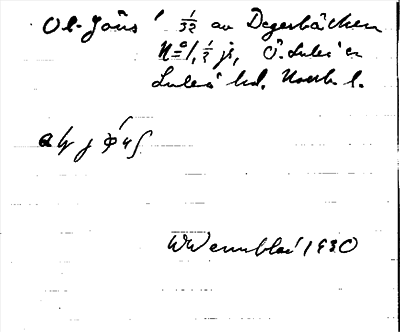 Ol-Jöns' 1/32 av Degerbäcken
N:o 1, 1/2 jr, Ö. Luleå sn
Luleå hd. Norrb. l.
W Wennblad 1930